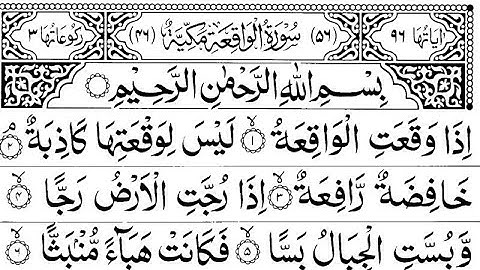 اٰیَاتُهَا ٩٦ (٥٦) سُوْرَةُ الْوَاقِعَةِ مَكِّيَّةٌ (٤٦) رُكُوْعَاتُهَا ٣
بِسْمِ اللهِ الرَّحْمٰنِ الرَّحِيْمِ
اِذَا وَقَعَتِ الْوَاقِعَةُ ١ لَيْسَ لِوَقْعَتِهَا كَاذِبَةٌ ۘ ٢
خَافِضَةٌ رَّافِعَةٌ ٣ اِذَا رُجَّتِ الْاَرْضُ رَجًّا ٤
وَّبُسَّتِ الْجِبَالُ بَسًّا ٥ فَكَانَتْ هَبَآءً مُّنْۢبَثًّا ٦